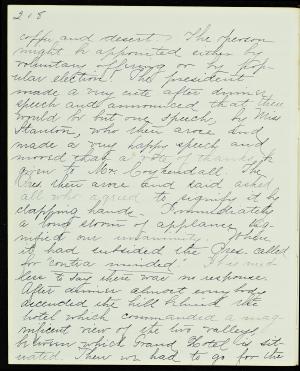 218
coffee and desert. The person
might be appointed either by
voluntary offering or by pop-
ular election. The president
made a very cute after dinner
speech and announced that there
would be but one speech, by Miss
Stanton, who then arose and
made a very happy speech and
moved that a vote of thanks be
given to Mr. Coykendall. The
Pres. then arose and said asked
all who agreed to signify it by
clapping hands. Immediately
a long storm of applause sig-
nified our unanimity. When
it had subsided the Pres. called
for "contra minded."
less to say there was no response.
After dinner almost everybody
ascended the hill behind the
hotel which commanded a mag-
nificent view of the two valleys
between which Grand Hotel is sit-
uated. Then we had to go for the